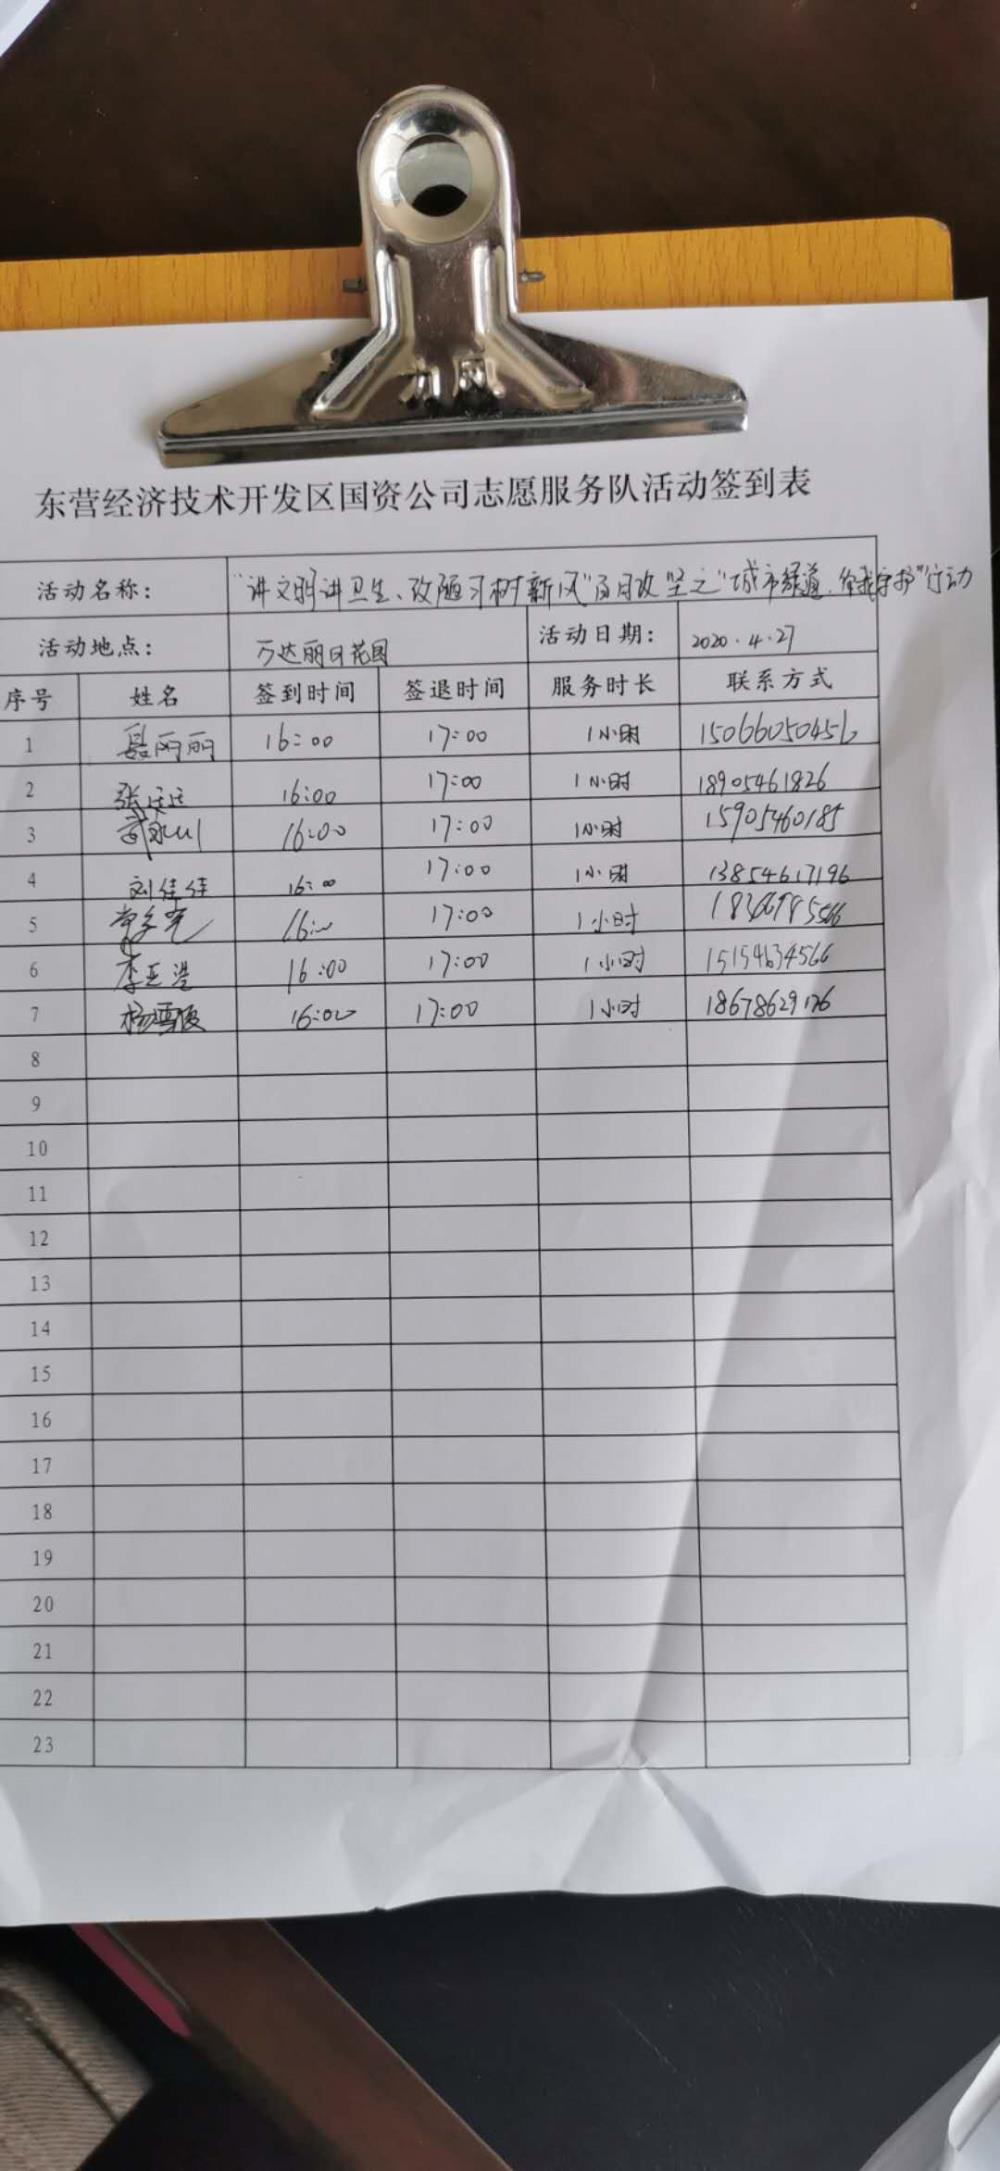 东营经济技术开发区国资公司志愿服务队活动签到表
活动名称: "讲文明讲卫生、改陋习树新风"百日攻坚之"城市绿道,你我守护"行动
活动地点: 万达丽日花园 活动日期: 2020.4.27
序号 姓名 签到时间 签退时间 服务时长 联系方式
1 聂丽丽 16:00 17:00 1小时 15066050456
2 张 16:00 17:00 1小时 18905461826
3 16:00 17:00 1小时 15905460185
4 刘佳佳 16:00 17:00 1小时 13854617196
5 16:00 17:00 1小时
6 李亚 16:00 17:00 1小时 15154634566
7 杨 16:00 17:00 1小时 18678629126
8
9
10
11
12
13
14
15
16
17
18
19
20
21
22
23